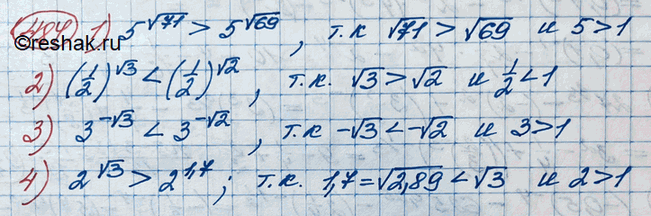 484 1) 5^√71 > 5^√69, т.к √71 > √69 и 5>1
©reshak.ru
2) (1/2)^√3 < (1/2)^√2, т.к. √3 > √2 и 1/2 < 1
3) 3^-√3 < 3^-√2, т.к -√3 < -√2 и 3>1
4) 2^√3 > 2^1,7; т.к. 1,7 = √2,89 < √3 и 2>1